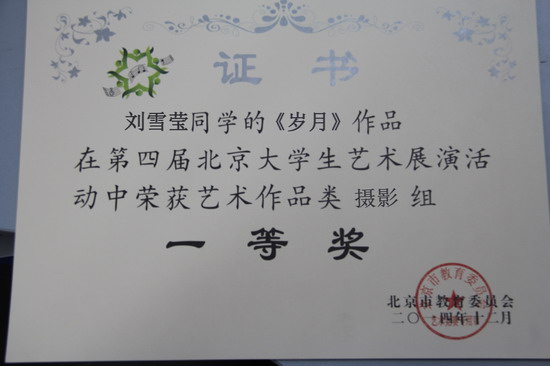 证书
刘雪莹同学的《岁月》作品
在第四届北京大学生艺术展演活
动中荣获艺术作品类 摄影 组
一等奖
北京市教育委员会
二〇一四年十二月